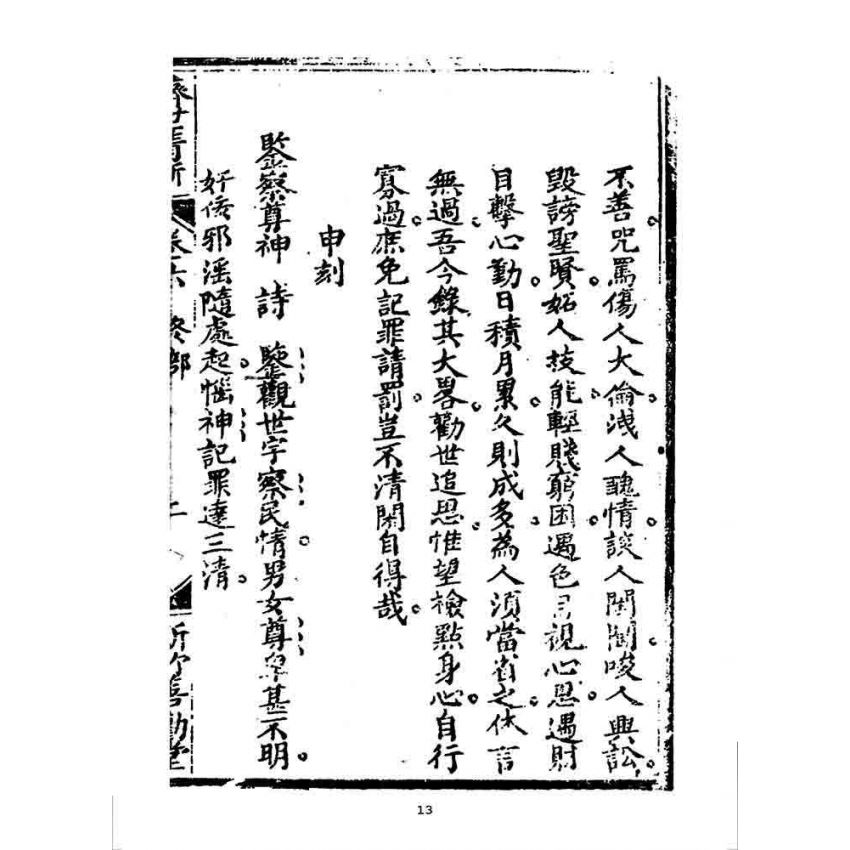 不善咒罵傷人大倫洩人醜情談人閨閫唆人興訟
毀謗聖賢妬人技能輕賤窮困遇色目視心思遇財
目擊心動日積月累久則成多為人須當省之休言
無過吾今錄其大畧勸世追思惟望檢點身心自行
寡過庶免記罪請罰豈不清閑自得哉
申刻
鑒察尊神 詩 鑒觀世宇察民情男女尊卑甚不明
奸佞邪淫隨處起惱神記罪達三清
卷六 終部
13